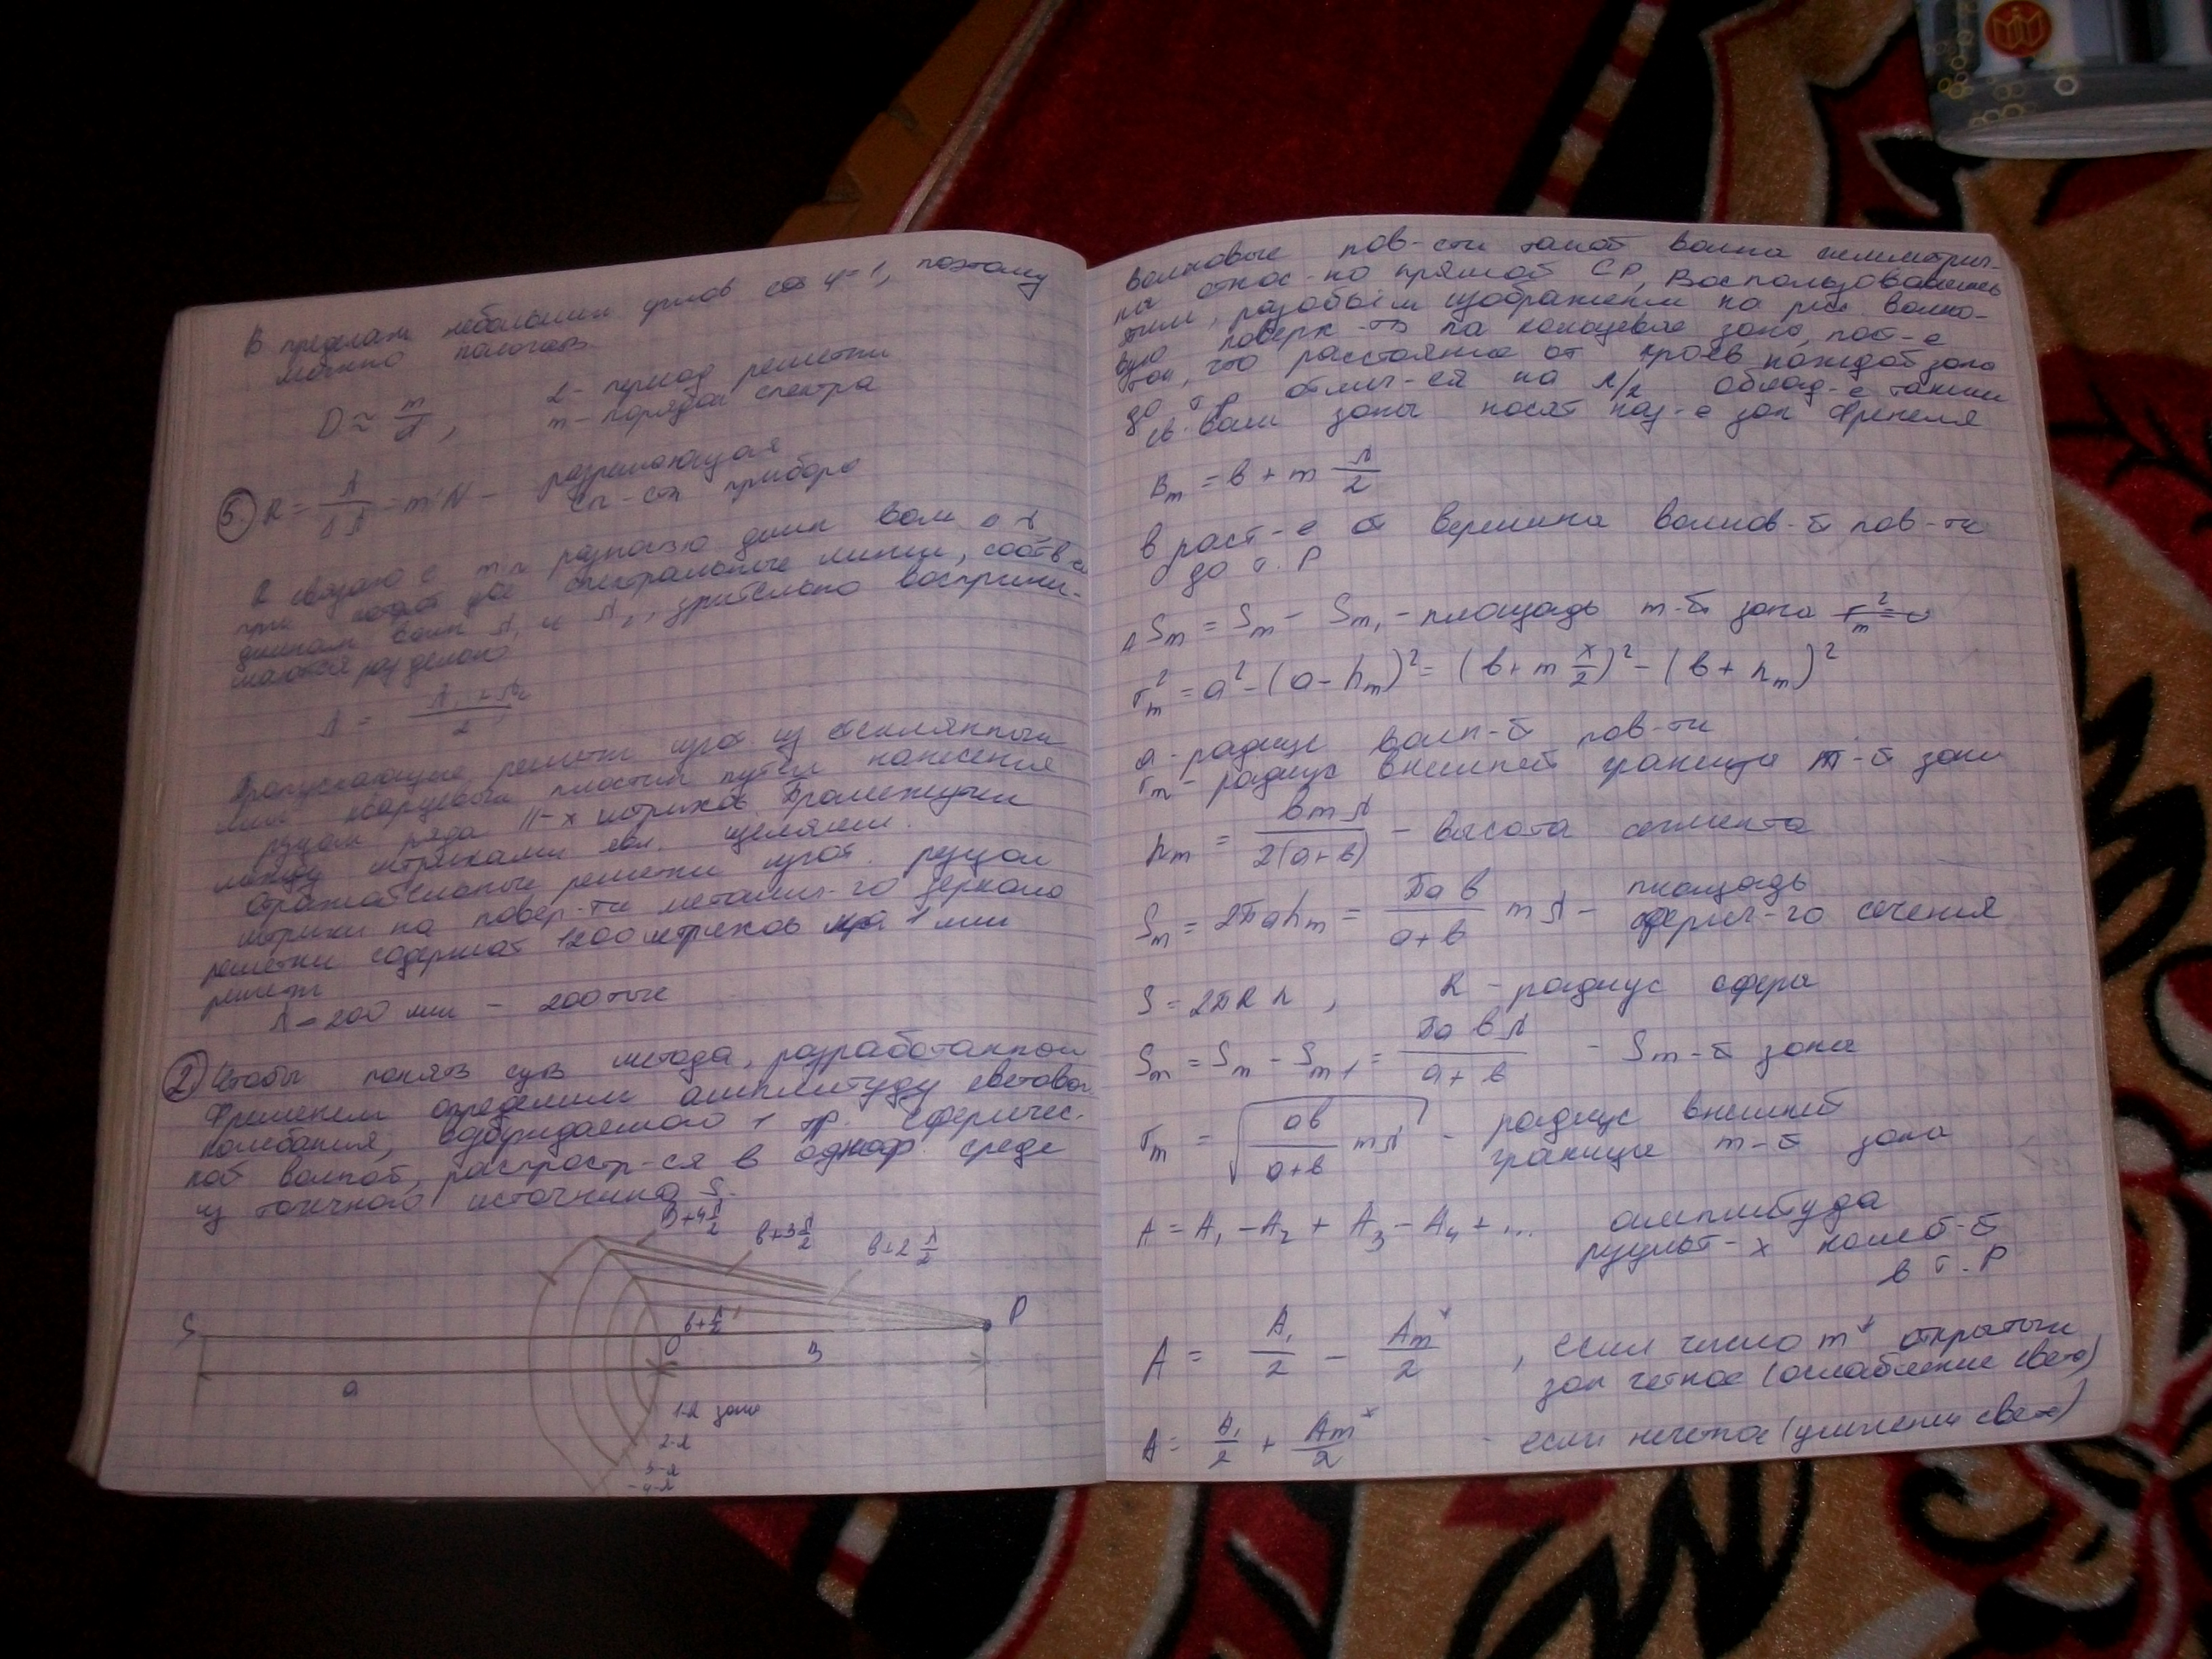 В пределах небольших углов cos φ=1, поэтому
можно полагать
D ≈ m/d, d - период решетки
m - порядок спектра
5. R = λ/Δλ = m·N - разрешающая
сп-сть прибора
R связано с разностью длин волн Δλ
при две спектральные линии, соотв-е
длинам волн λ₁ и λ₂, зрительно восприни-
маются раздельно
λ = (λ₁ + λ₂)/2
Пропускающие решетки изгот. из стеклянных
или кварцевых пластин путём нанесения
резцом ряда II-х штрихов. Промежутки
между штрихами явл. щелями.
Отражательные решетки изгот. резцом
штрихи на повер-ти металлич-го зеркала
решетки содержат 1200 штрихов на 1 мм
решетк
λ = 200 мм - 200 тыс
2. Чтобы понять суть метода, разработанной
Френелем определим амплитуду светового
колебания, возбуждаемого т. Р. сферичес-
кой волной, распростр-ся в однор. среде
из точечного источника S.
в+4λ/2 в+3λ/2 в+2λ/2
S в+λ/2 P
O
а в
1-я зона
2-я
3-я
-4-я
Волновые пов-сти такой волны симметрич-
ны относ-но прямой СР, Воспользовавшись
этим, разобьём изображен на рис. волно-
вую поверх-ть на кольцевые зоны, пост-е
так, что расстояния от краёв каждой зоны
до т. Р отлич-ся на λ/2 Облад-е таким
св-вом зоны носят наз-е зон Френеля
вₘ = в + m λ/2
в раст-е от вершины волнов-й пов-ти
до т. Р
ΔSₘ = Sₘ - Sₘ₁ - площадь m-й зоны
rₘ² = a² - (a - hₘ)² = (в + m λ/2)² - (в + hₘ)²
а - радиус волн-й пов-ти
rₘ - радиус внешней границы m-й зоны
hₘ = вmλ/2(а+в) - высота сегмента
Sₘ = 2πahₘ = πaв/(а+в) mλ - площадь
сферич-го сечения
S = 2πRh, R - радиус сферы
Sₘ = Sₘ - Sₘ₋₁ = πaвλ/(а+в) - Sm-й зоны
rₘ = √(ав/(а+в) mλ) - радиус внешней
границы m-й зоны
A = A₁ - A₂ + A₃ - A₄ + ... амплитуда
результ-х колеб-й
в т. Р
A = A₁/2 - Aₘ*/2, если число m* открытых
зон четное (ослабление света)
A = A₁/2 + Aₘ*/2 - если нечетное (усиление света)